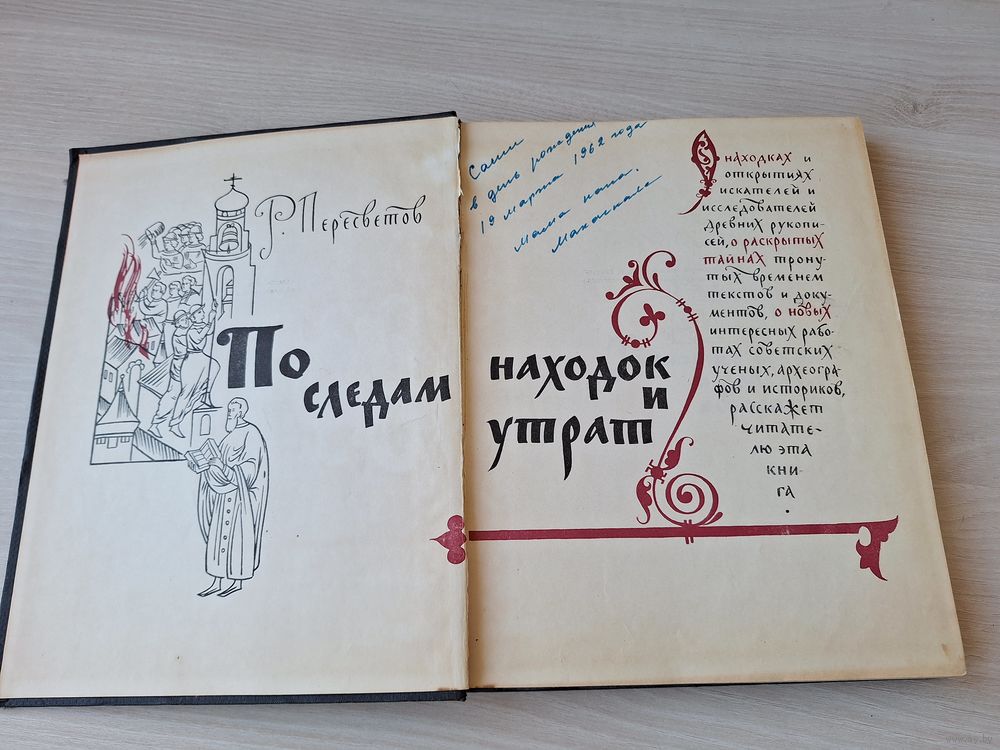 Р. Пересветов
По
следам
находок
и
утрат
Саше
в день рождения
19 марта 1962 года
Мама папа,
О находках и
открытиях
искателей и
исследователей
древних рукопи-
сей, о раскрытых
тайнах трону-
тых временем
текстов и доку-
ментов, о новых
интересных рабо-
тах советских
ученых, археогра-
фов и историков,
расскажет
читате-
лю эта
кни-
га
.
www.ay.by